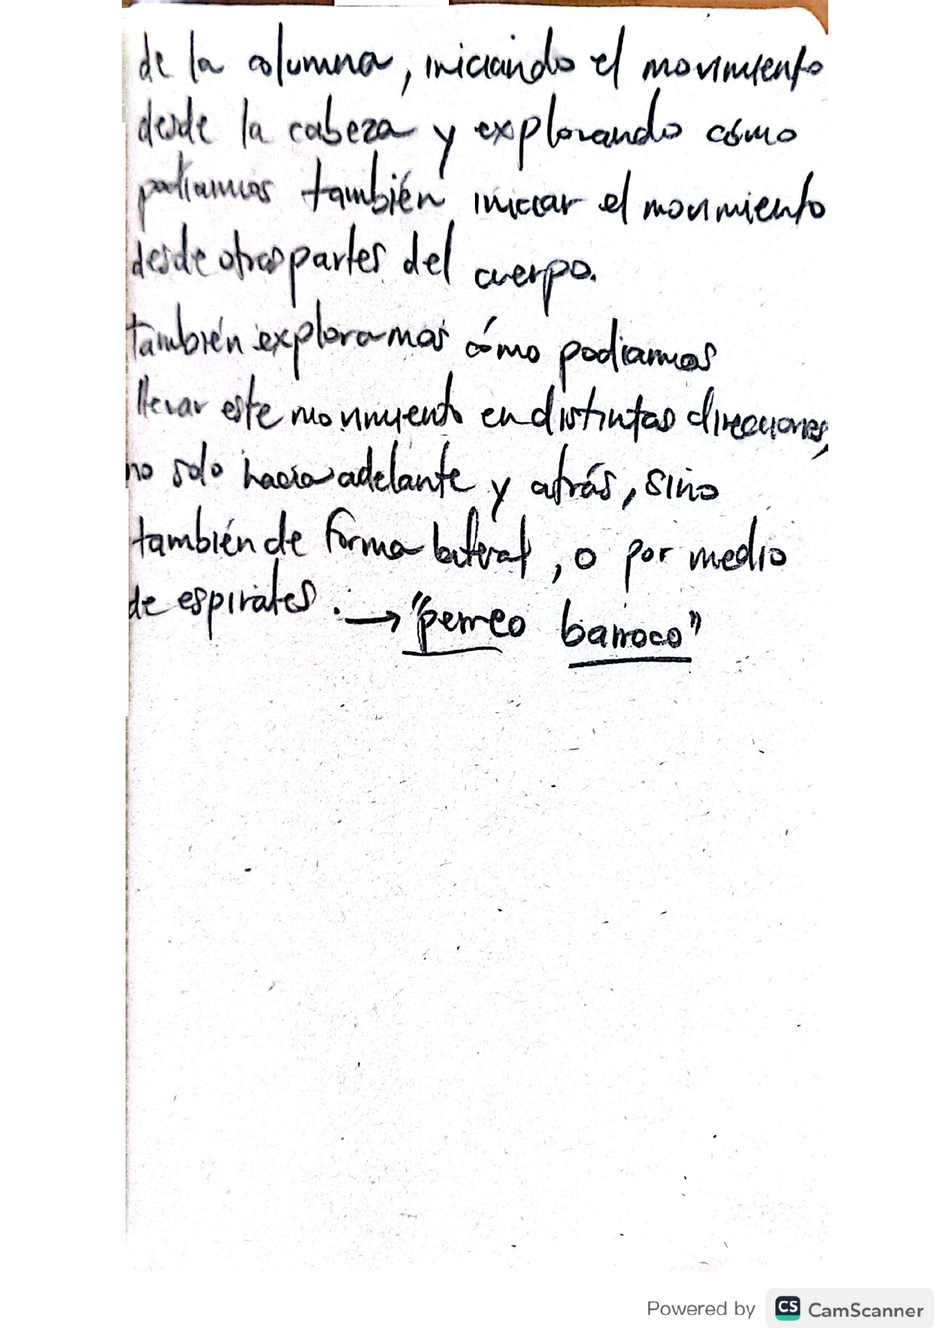 de la columna, iniciando el movimiento
desde la cabeza y explorando cómo
podíamos también iniciar el movimiento
desde otras partes del cuerpo.
también exploramos cómo podíamos
llevar este movimiento en distintas direcciones,
no solo hacia adelante y atrás, sino
también de forma lateral, o por medio
de espirales. → "perreo barroco"
Powered by CS CamScanner